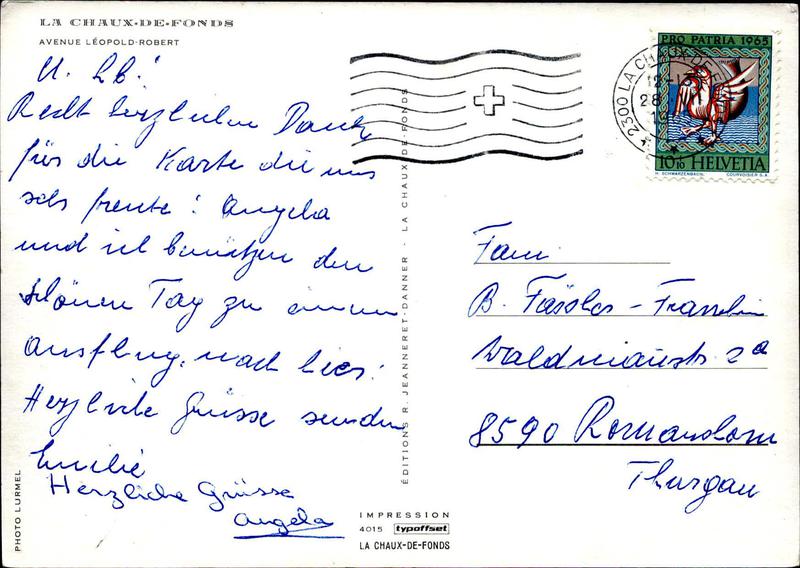 LA CHAUX-DE-FONDS
AVENUE LÉOPOLD-ROBERT
Recht herzlichen Dank
für die Karte die uns
sehr freute! Angela
und ich benützen den
schönen Tag zu einem
Ausflug nach hier.
Herzliche Grüsse senden
Emilie
Herzliche Grüsse
Angela
PHOTO LURMEL
ÉDITIONS R. JEANNERET-DANNER - LA CHAUX-DE-FONDS
IMPRESSION
4015 typoffset
LA CHAUX-DE-FONDS
2300 LA CHAUX-DE-F
28
PRO PATRIA 1965
10+10 HELVETIA
H. SCHWARZENBACH. COURVOISIER S.A.
Fam
B.
2a
8590 Romanshorn
Thurgau